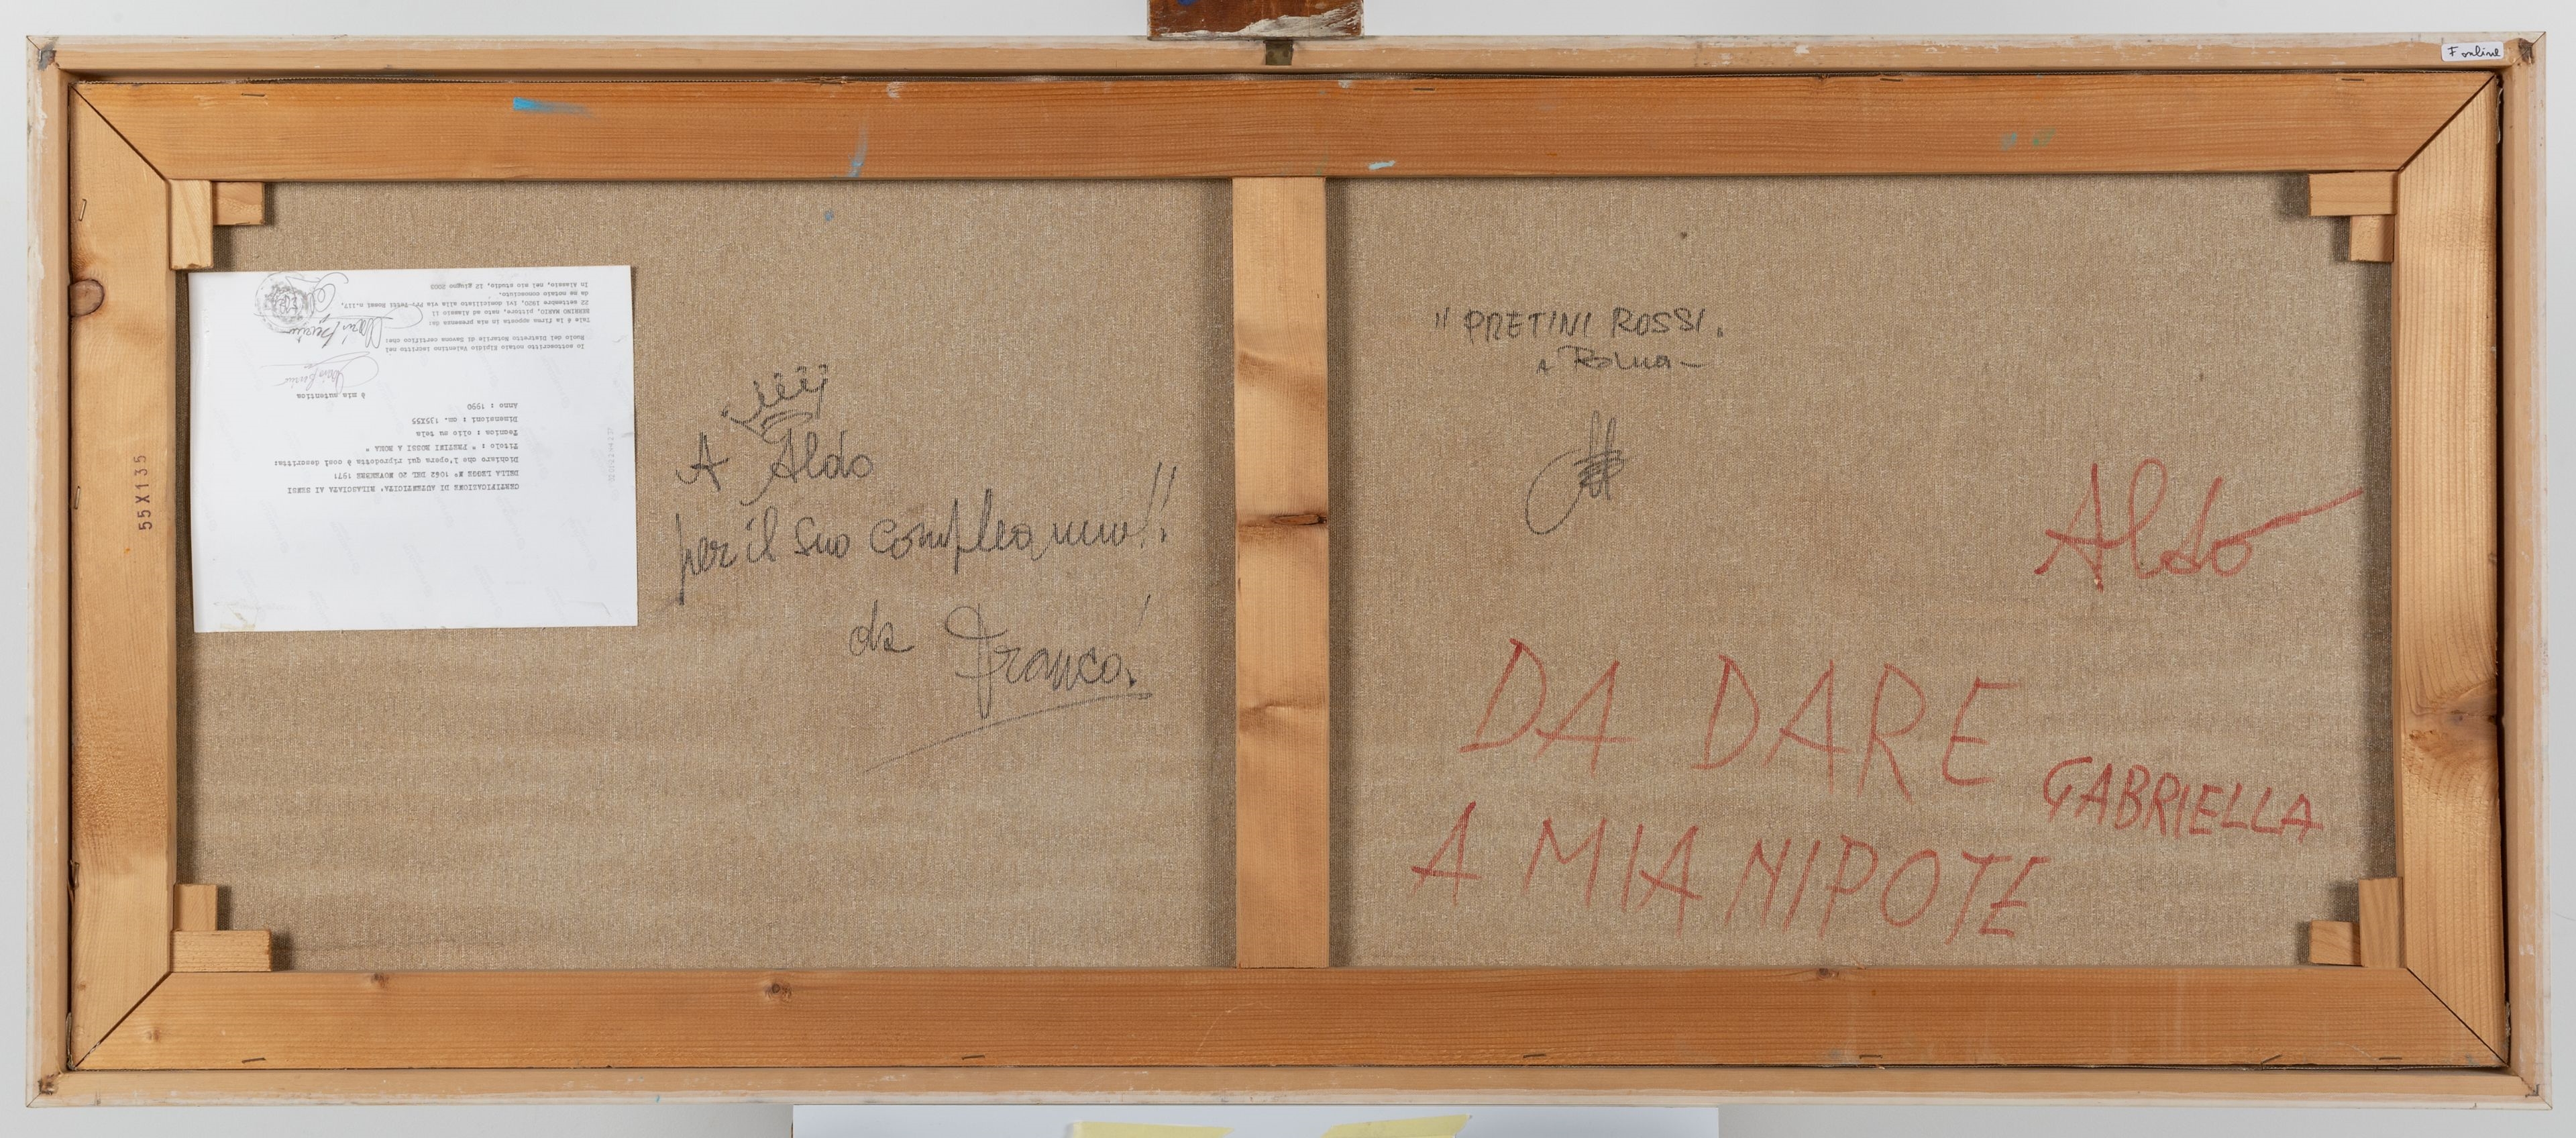 F online
CERTIFICAZIONE DI AUTENTICITA' RILASCIATA AI SENSI
DELLA LEGGE N° 1062 DEL 20 NOVEMBRE 1971
Dichiaro che l'opera qui riprodotta è così descritta:
Titolo : " PRETINI ROSSI A ROMA "
Tecnica : olio su tela
Dimensioni : cm. 135X55
Anno : 1990
è mia autentica
Io sottoscritto notaio Elpidio Valentino iscritto nel
Ruolo del Distretto Notarile di Savona certifico che:
Tale è la firma apposta in mia presenza da:
BERRINO MARIO, pittore, nato ad Alassio il
22 settembre 1920, ivi domiciliato alla via Rossi n.117,
da me notaio conosciuto.
In Alassio, nel mio studio, 12 giugno 2003
55X135
A Aldo
per il suo compleanno!!
da Franca!
" PRETINI ROSSI.
A Roma-
Aldo
DA DARE
GABRIELLA
A MIA NIPOTE